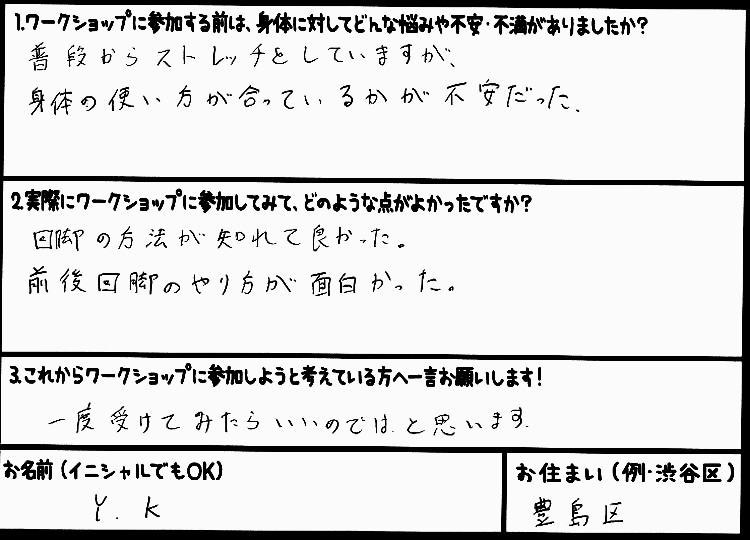 1.ワークショップに参加する前は、身体に対してどんな悩みや不安・不満がありましたか？
普段からストレッチをしていますが、
身体の使い方が合っているかが不安だった。
2.実際にワークショップに参加してみて、どのような点がよかったですか？
回脚の方法が知れて良かった。
前後回脚のやり方が面白かった。
3.これからワークショップに参加しようと考えている方へ一言お願いします！
一度受けてみたらいいのではと思います。
お名前（イニシャルでもOK）
Y. K
お住まい（例・渋谷区）
豊島区